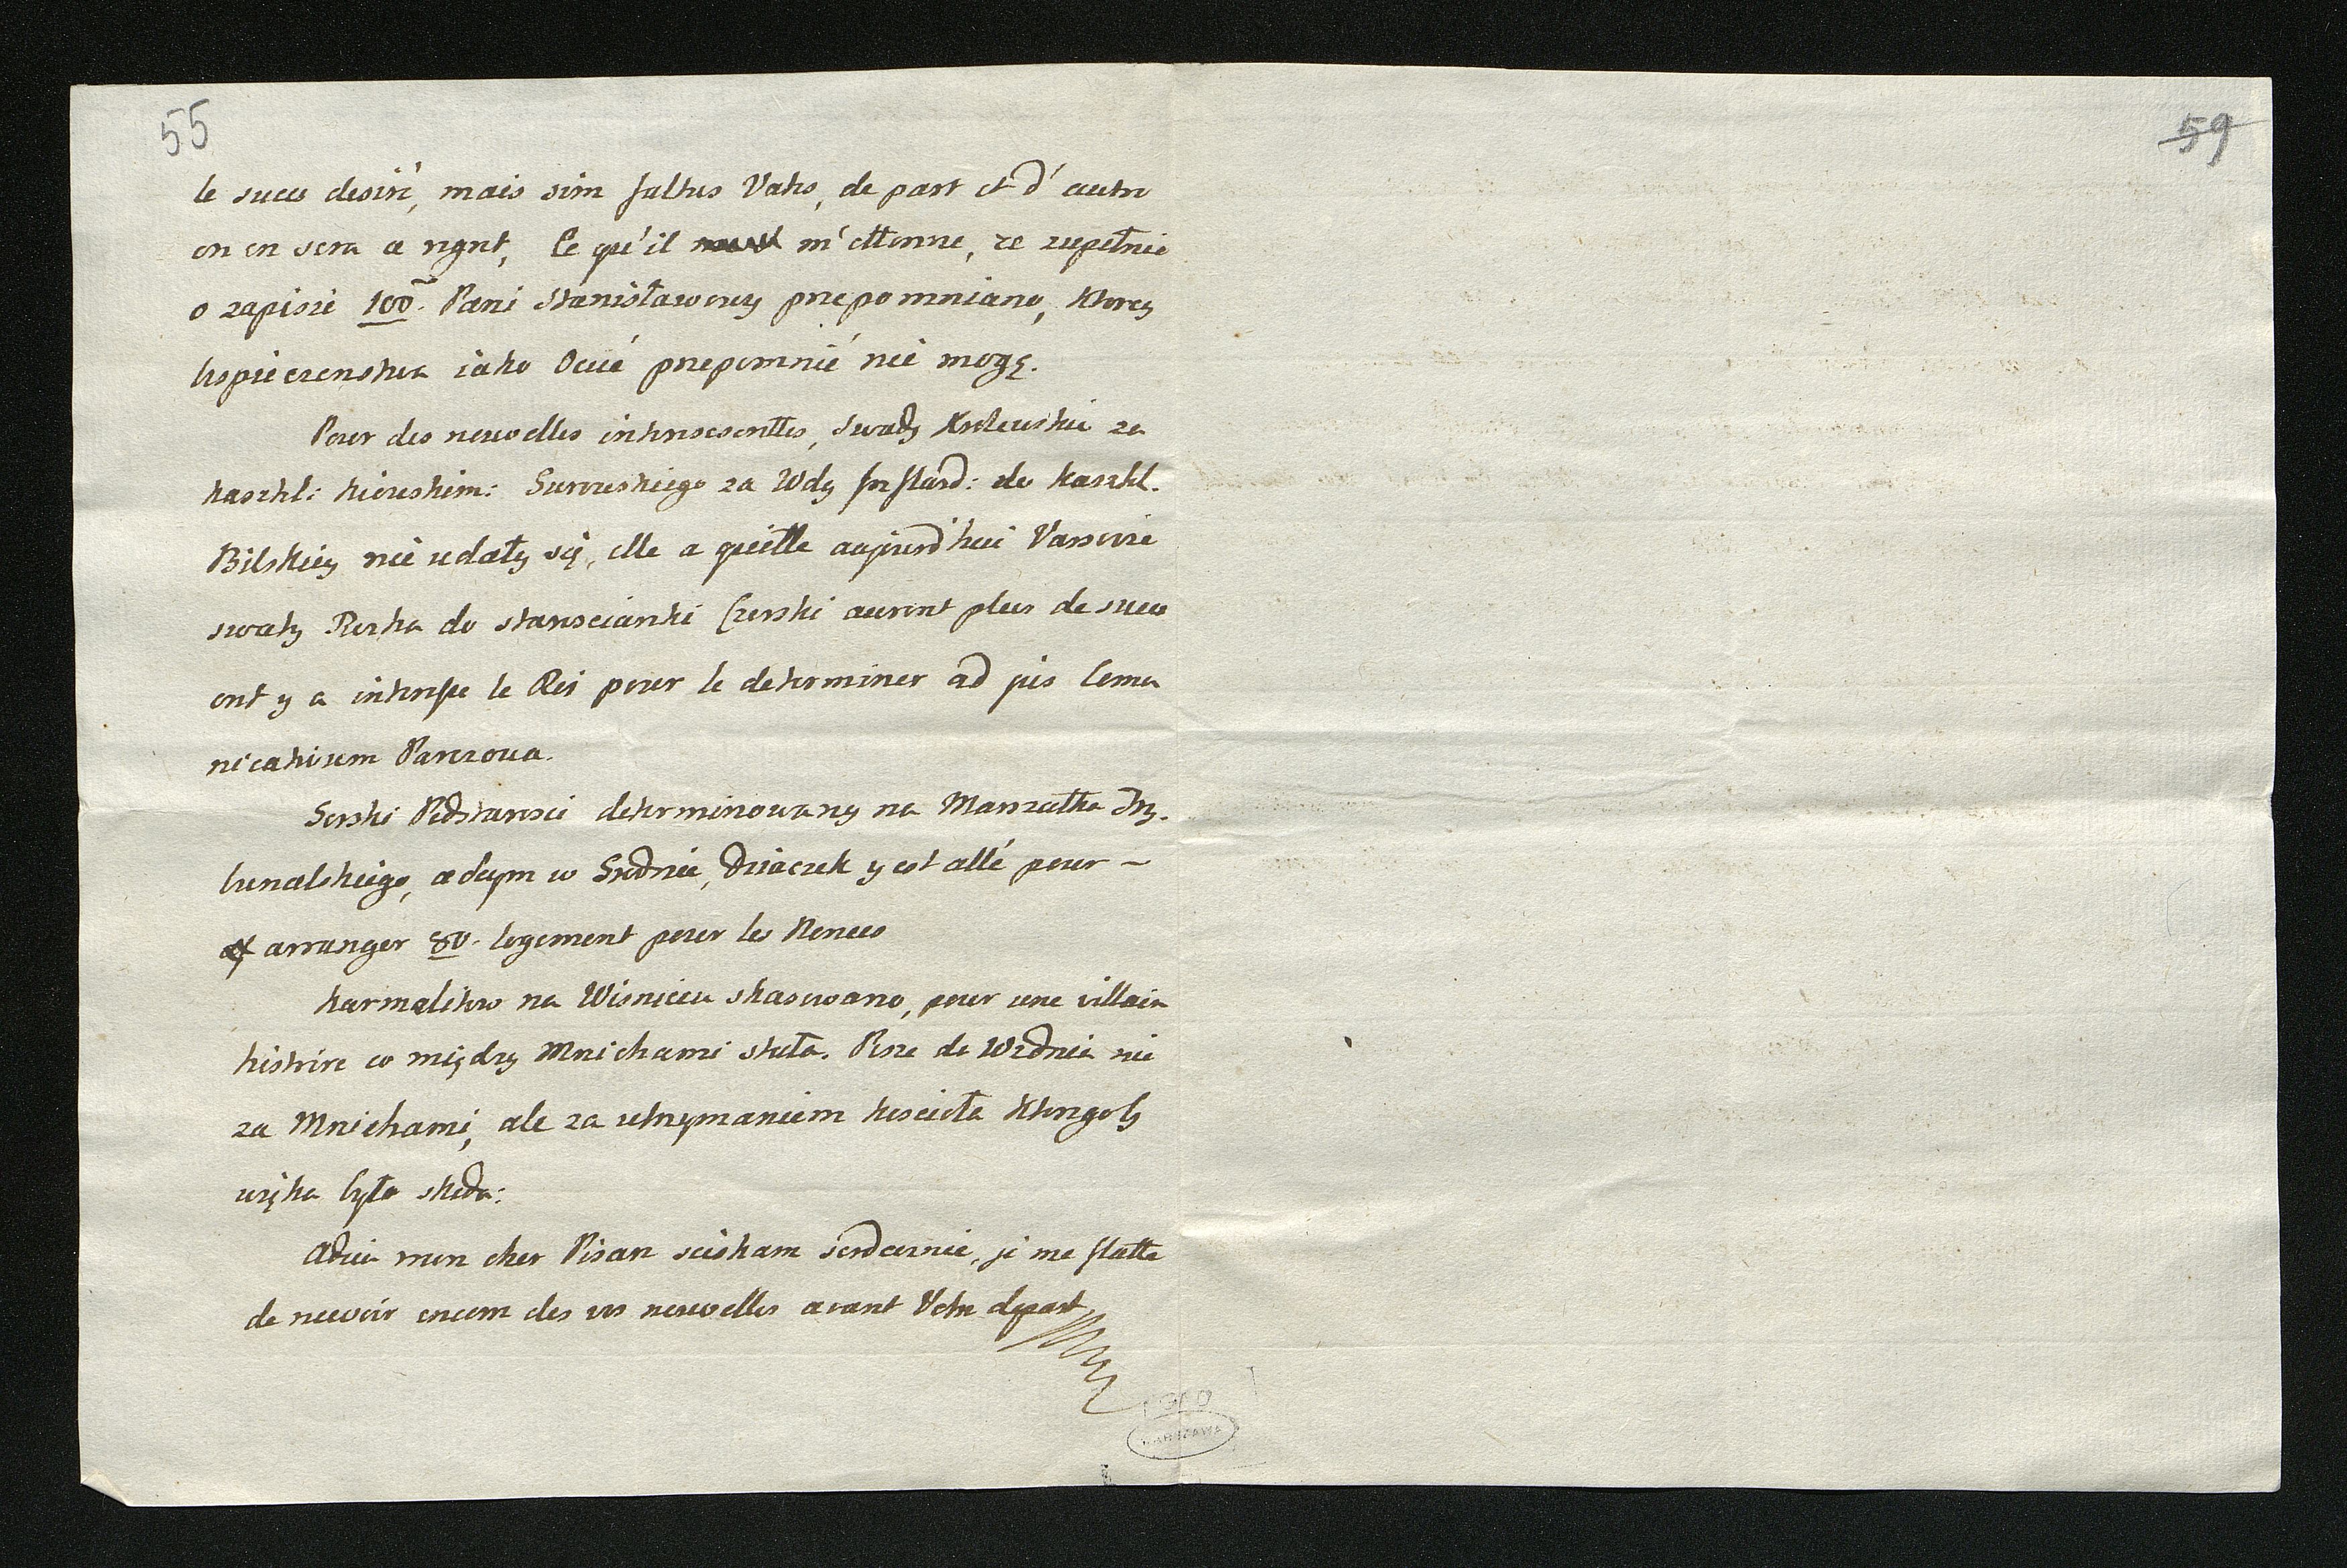 55
59
le succes desiré, mais sim falsus Vates, de part et d'autre
on en sera a regret, Ce qu'il m'ettonne, ze zupełnie
o zapisie 100. Pani Stanisławowey przepomniano, ktorey
ubespieczenstwa iako Ociec przepomnić nie mogę.
Pour des nouvelles interessenttes, swaty Krolewskie za
kasztl: kiiowskim: Surowskiego za Wdę do kasztl.
Bilskiey nie udały się, elle a quitté aujourd'hui Varsovie
swaty Rocha do staroscianki Czerski auront plus de succes
ont y a interesse le Roi pour le determiner ad jus Comu
nicativum Parczowa.
Serski Podstarosci determinowany na Marszałka Try-
bunalskiego, a dupm w Grodnie, Dziaczek y est allé pour
arranger 80. logement pour les
karmelitow na Wisniczu skasowano, pour une villain
histoire co między Mnichami stała. Pisze do Wiednia nie
za Mnichami, ale za utrzymaniem koscioła ktorgoby
wielka była skoda:
Adieu mon cher Pisarz sciskam serdecznie, je me flatte
de recevoir encore des vos nouvelles avant Votre depart
WARSZAWA